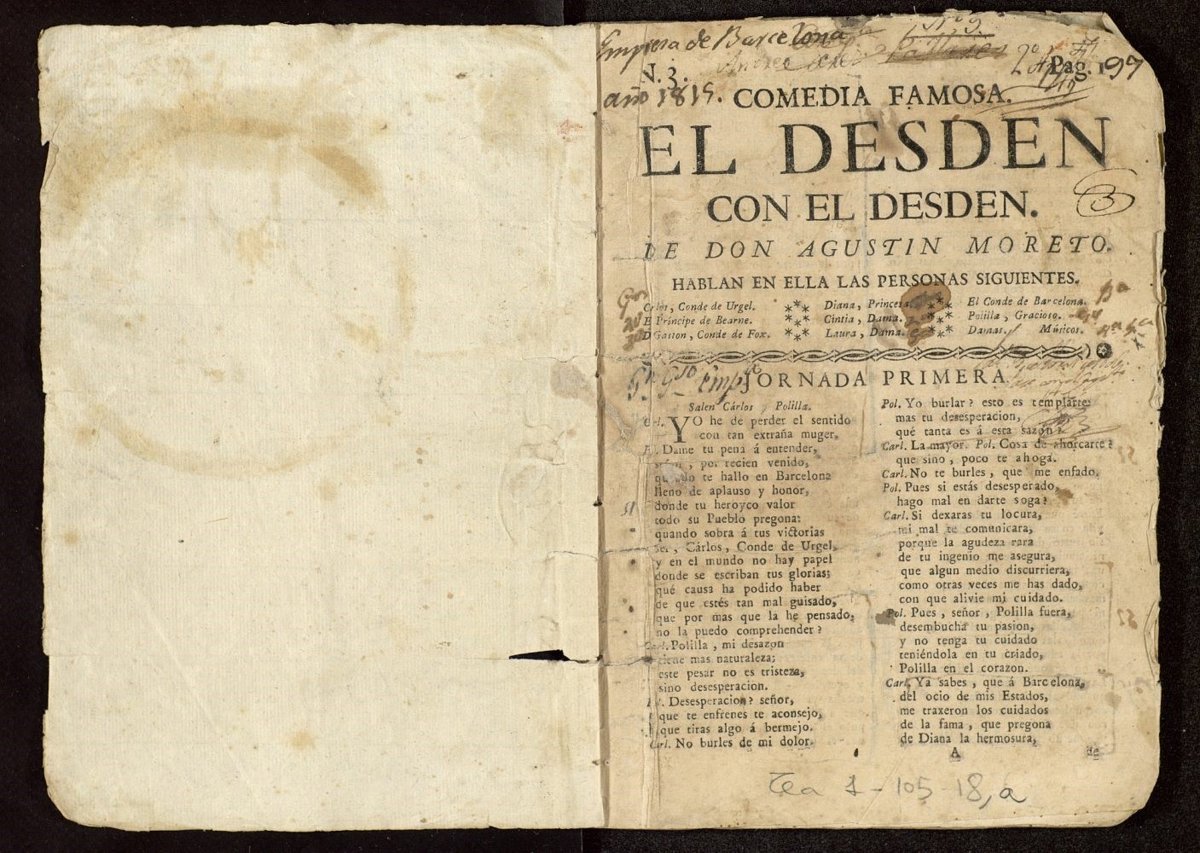 Empresa de Barcelona
N. 3.
Pag. 1
97
año 1815.
COMEDIA FAMOSA.
EL DESDEN
CON EL DESDEN.
3
DE DON AGUSTIN MORETO.
HABLAN EN ELLA LAS PERSONAS SIGUIENTES.
Conde de Urgel. Diana, Princesa El Conde de Barcelona.
El Príncipe de Bearne. Cintia, Dama. Polilla, Gracioso.
D. Gaston, Conde de Fox. Laura, Dama. Damas. Músicos.
JORNADA PRIMERA
Salen Cárlos y Polilla.
Carl. YO he de perder el sentido
con tan extraña muger.
Dame tu pena á entender,
señor, por recien venido,
quando te hallo en Barcelona
lleno de aplauso y honor,
donde tu heroyco valor
todo su Pueblo pregona:
quando sobra á tus victorias
ser, Cárlos, Conde de Urgel,
y en el mundo no hay papel
donde se escriban tus glorias;
qué causa ha podido haber
de que estés tan mal guisado,
que por mas que la he pensado,
no la puedo comprehender?
Carl. Polilla, mi desazon
tiene mas naturaleza;
este pesar no es tristeza,
sino desesperacion.
Desesperacion? señor,
que te enfrenes te aconsejo,
que tiras algo á bermejo.
Carl. No burles de mi dolor.
Pol. Yo burlar? esto es templarte:
mas tu desesperacion,
qué tanta es á esta sazon?
Carl. La mayor. Pol. Cosa de ahorcarte?
que sino, poco te ahoga.
Carl. No te burles, que me enfado.
Pol. Pues si estás desesperado,
hago mal en darte soga?
Carl. Si dexaras tu locura,
mi mal te comunicara,
porque la agudeza rara
de tu ingenio me asegura,
que algun medio discurriera,
como otras veces me has dado,
con que alivie mi cuidado.
Pol. Pues, señor, Polilla fuera,
desembucha tu pasion,
y no tenga tu cuidado
teniéndola en tu criado,
Polilla en el corazon.
Carl. Ya sabes, que á Barcelona,
del ocio de mis Estados,
me traxeron los cuidados
de la fama, que pregona
de Diana la hermosura,
A
de
Tea 1-105-18,a